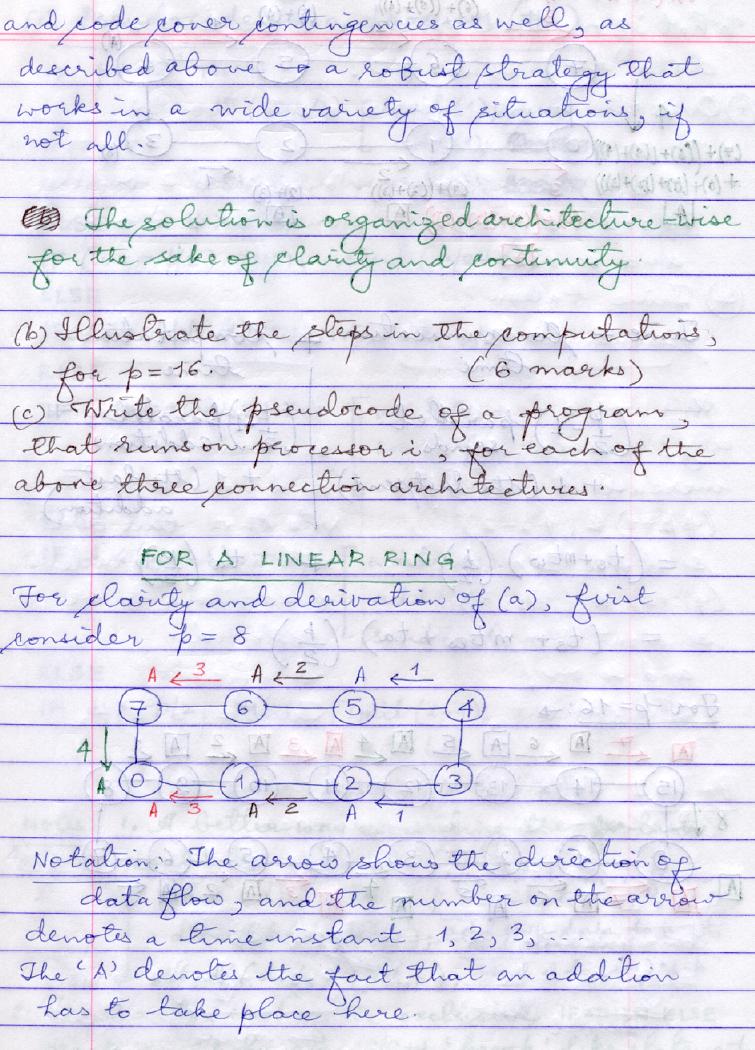 and code cover contingencies as well, as
described above → a robust strategy that
works in a wide variety of situations, if
not all.
The solution is organized architecture-wise
for the sake of clarity and continuity.
(b) Illustrate the steps in the computations,
for p = 16. (6 marks)
(c) Write the pseudocode of a program,
that runs on processor i, for each of the
above three connection architectures.
FOR A LINEAR RING
For clarity and derivation of (a), first
consider p = 8
A ← 3 A ← 2 A ← 1
7 6 5 4
4 ↓
A 0 1 2 3
A ← 3 A ← 2 A ← 1
Notation: The arrow shows the direction of
data flow, and the number on the arrow
denotes a time instant 1, 2, 3, ...
The 'A' denotes the fact that an addition
has to take place here.